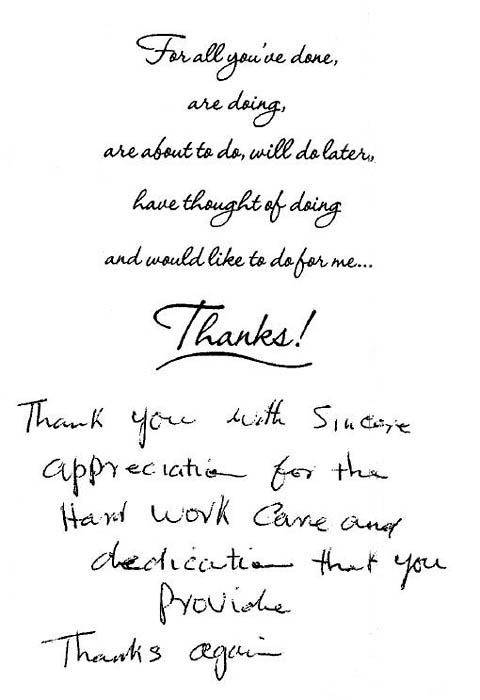 For all you've done,
are doing,
are about to do, will do later,
have thought of doing
and would like to do for me...
Thanks!
Thank you with Sincere
appreciation for the
Hard Work Care and
dedication that you
Provide
Thanks again